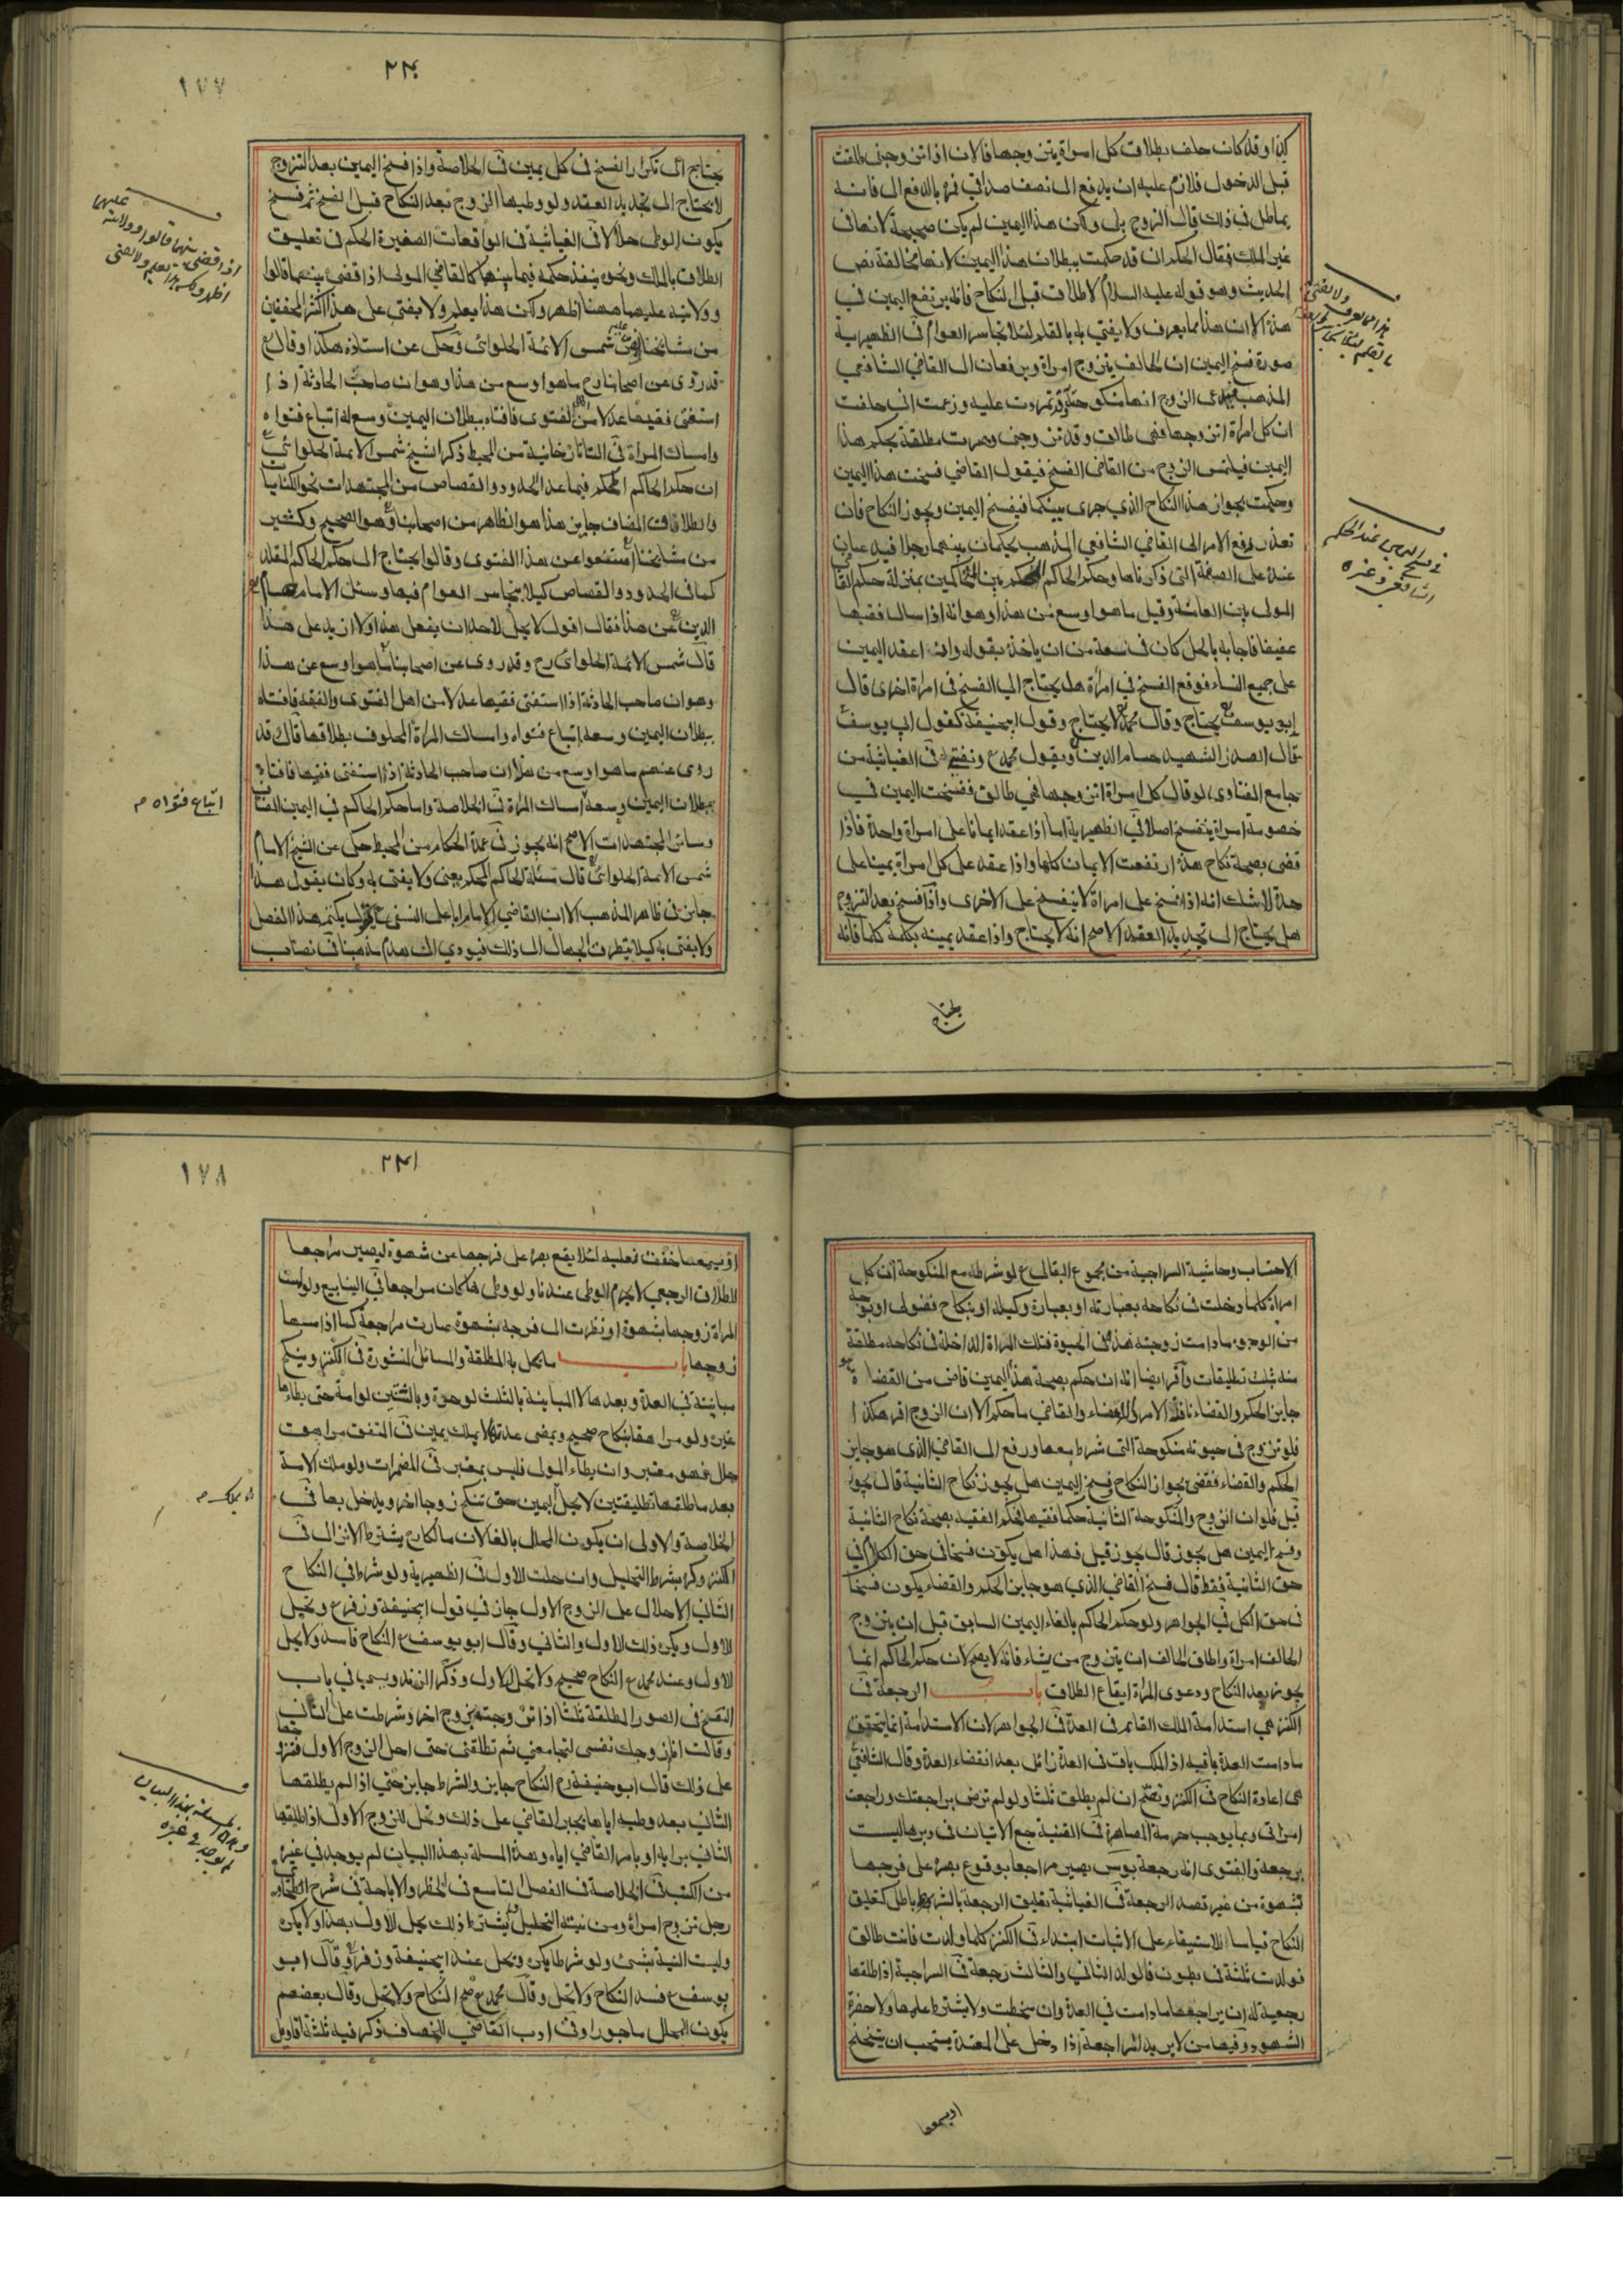 كذا وقد كان حلف بطلاق كل امراة يتزوجها فالان اذا تزوجنى طلقت
قبل الدخول فلازم عليه ان يدفع الى نصف صداقي فره بالدفع الى فانه
يماطل فى ذلك قال الزوج بلى ولكن هذا اليمين لم يكن صحيحة لانها فى
غير الملك فقال الحكم ان قد حكمت ببطلان هذا اليمين لانها مخالفة نص
الحديث وهو قوله عليه السلام لا طلاق قبل النكاح فانه يرتفع اليمين في
هذا الا ان هذا مما يعرف ولا يفتي به بالقلم لئلا يتجاسر العوام فى الظهيرية
صورة فسخ اليمين ان الحالف يتزوج امراة ويرفعان الى القاضي الشافعي
المذهب الزوج انها منكوحتى وقد تمردت عليه وزعمت اني حلفت
ان كل امراة اتزوجها فهي طالق وقد تزوجني وصرت مطلقة بحكم هذا
اليمين فيلتمس الزوج من القاضي الفسخ فيقول القاضي فسخت هذا اليمين
وحكمت بجواز هذا النكاح الذي جرى بينكما فيفسخ اليمين ويجوز النكاح فان
تعذر رفع الامر الى القاضي الشافعي المذهب يحكمان بينهما رجلا فيه
على الصفة التى ذكرناها وحكم الحاكم المحكم بين المحاكمين بمنزلة حكم القاضي
المولى بين العامة وقيل ما هو اوسع من هذا وهو انه اذا سال فقيها
عفيفا فاجابه بالحل كان فى سعة من ان ياخذ بقوله وان عقد اليمين
على جميع النساء فوقع الفسخ في امراة هل يحتاج الي الفسخ فى امراة اخرى قال
ابو يوسف يحتاج وقال محمد لا يحتاج وقول ابيحنيفة كقول ابي يوسف
قال الصدر الشهيد حسام الدين وبقول محمد نفتي فى الغياثية من
جامع الفتاوى لو قال كل امراة اتزوجها فهي طالق ففسخت اليمين في
خصومة امراة ينفسخ اصلا في الظهيرية اما اذا عقد ايمانا على امراة واحدة فاذا
قضى بصحة نكاح هذه ارتفعت الايمان كلها واذا عقد على كل امراة يمينا على
حدة لا شك انه اذا فسخ على امراة لا ينفسخ على الاخرى واذا فسخ بعد التزوج
هل يحتاج الى تجديد العقد الاصح انه لا يحتاج واذا عقد يمينه بكلمة كلما فانه
يحتاج
فى فسخ اليمين عند الحكم
الشافعي وغيره
١٧٧
٢٣٠
يحتاج الى تكرار الفسخ فى كل يمين فى الخلاصة واذا فسخ اليمين بعد التزوج
لا يحتاج الى تجديد العقد ولو وطيها الزوج بعد النكاح قبل الفسخ ثم فسخ
يكون الوطى حلالا فى الغياثية فى الواقعات الصغيرة الحكم فى تعليق
الطلاق بالملك ونحوه ينفذ حكمه فيما بينهما كالقاضي المولى اذا قضى بينهما قالوا
وولايته عليهما ههنا اظهر ولكن هذا يعلم ولا يفتى على هذا اكثر المحققين
من مشايخنا شمس الائمة الحلوائي وحكى عن استاذه هكذا وقال
قد روى عن اصحابنا رح ما هو اوسع من هذا وهو ان صاحب الحادثة اذا
استفتى فقيها عدلا من اهل الفتوى فافتاه ببطلان اليمين وسع له اتباع فتواه
وامساك المراة فى التاتارخانية من المحيط ذكر الشيخ شمس الائمة الحلوائي
ان حكم الحاكم المحكم فيما عدا الحدود والقصاص من المجتهدات نحو الكنايات
والطلاق المضاف جايز هذا هو الظاهر من اصحابنا وهو الصحيح وكثير
من مشايخنا امتنعوا عن هذا الفتوى وقالوا يحتاج الى حكم الحاكم المقلد
كما فى الحدود والقصاص كيلا يتجاسر العوام فيها وسئل الامام حسام
الدين عن هذا فقال اقول لا يحل لاحد ان يفعل هذا ولا ازيد على هذا
قال شمس الائمة الحلوائ رح وقد روى عن اصحابنا ما هو اوسع من هذا
وهو ان صاحب الحادثة اذا استفتى فقيها عدلا من اهل الفتوى والفقه فافتاه
ببطلان اليمين وسعه اتباع فتواه وامساك المراة المحلوف بطلاقها قال قد
روى عنهم ما هو اوسع من هذا ان صاحب الحادثة اذا استفتى فقيها فافتاه
ببطلان اليمين وسعه امساك المراة فى الخلاصة واما حكم الحاكم في اليمين المضاف
وسائر المجتهدات الاصح انه يجوز فى عمدة الحكام من المحيط حكى عن الشيخ الامام
شمس الائمة الحلوائي قال مسئلة الحاكم المحكم يعنى ولا يفتى به وكان يقول هذا
جايز فى ظاهر المذهب الا ان القاضي الامام ابا على النسفى يكتم هذا الفصل
ولا يفتى به كيلا يتطرق الجهال الى ذلك فيودي الى هدم مذهبنا فى نصاب
اتباع فتواه م
١٧٨
٢٣١
الاحتساب وحاشية السراجية من مجموع البقالي لو شرطه مع المنكوحة ان كل
امراة كلما دخلت فى نكاحه بعبارته او بعبارة وكيله او بنكاح فضولى او بوجه
من الوجوه ما دامت زوجته هذه فى الحيوة فتلك المراة الداخلة فى نكاحه مطلقة
منه بثلث تطليقات واقر ايضا انه ان حكم بصحة هذا اليمين قاض من القضاة هو
جايز الحكم والقضاء نافذ الامر والقضاء والقاضي ما حكم الا ان الزوج اقر هكذا
فلو تزوج فى حيوته منكوحة التى شرط معها ورفع الى القاضي الذى هو جايز
الحكم والقضاء فقضى بجواز النكاح وفسخ اليمين هل يجوز نكاح الثانية قال يجوز
قيل فلو ان الزوج والمنكوحة الثانية حكما فقيها فحكم الفقيه بصحة نكاح الثانية
وفسخ اليمين هل يجوز قال يجوز قيل فهذا هل يكون فسخا فى حق الكل ام في
حق الثانية فقط قال فسخ القاضي الذي هو جايز الحكم والقضاء يكون فسخا
فى حق الكل في الجواهر ولو حكم الحاكم بالغاء اليمين السابق قبل ان يتزوج
الحالف امراة واطلق الحالف ان يتزوج من يشاء فانه لا يصح لان حكم الحاكم انما
يجوز بعد النكاح ودعوى المراة ايقاع الطلاق باب الرجعة فى
الكنز هي استدامة الملك القائم فى العدة فى الجواهر لان الاستدامة انما يتحقق
ما دامت العدة باقية اذ الملك باق فى العدة زائل بعد انقضاء العدة وقال الشافعي
هى اعادة النكاح فى الكنز وتصح ان لم يطلق ثلثا ولو لم ترض براجعتك وراجعت
امراتى وبما يوجب حرمة المصاهرة فى القنية جع الاتيان فى دبرها ليست
برجعة والفتوى انه رجعة بوس يصير مراجعا بوقوع بصره على فرجها
بشهوة من غير قصد الرجعة فى الغياثية تعليق الرجعة بالشرط باطل كتعليق
النكاح قياسا للاستيفاء على الاثبات ابتداء فى الكنز كلما ولدت فانت طالق
فولدت ثلثة فى بطون فالولد الثاني والثالث رجعة فى السراجية اذا طلقها
رجعية له ان يراجعها ما دامت في العدة وان سخطت ولا يشترط علمها ولا حضرة
الشهود وفيها من لا يريد المراجعة اذا دخل على المعتدة يستحب ان يتنحنح
او يسمعها
او يسمعها خفق نعليه لئلا يقع بصره على فرجها عن شهوة ليصير مراجعا
الطلاق الرجعي لا يحرم الوطى عندنا ولو وطى هكذا كان مراجعا فى الينابيع ولو لمست
المراة زوجها بشهوة او نظرت الى فرجه بشهوة صارت مراجعة كما اذا مسها
زوجها باب ما يحل به المطلقة والمسائل المنثورة فى الكنز وينكح
مباينته في العدة وبعدها لا المباينة بالثلث لو حرة وبالثنتين لو امة حتى يطاءها
غيره ولو مراهقا بنكاح صحيح وتمضى عدته لا بملك يمين فى المتفق مراهق
حال فهو معتبر وان يطاء المولى فليس بمعتبر فى المضمرات ولو ملك الامة
بعد ما طلقها تطليقتين لا يحل اليمين حتى تنكح زوجا اخر ويدخل بها فى
الخلاصة والاولى ان يكون المحلل بالغا لان مالكا رح يشترط الانزال فى
الكنز وكره بشرط التحليل وان حلت للاول فى الظهيرية ولو شرط في النكاح
الثانى الاحلال على الزوج الاول جاز في قول ابيحنيفة وزفر وتحل
للاول ويكره ذلك للاول والثانى وقال ابو يوسف النكاح فاسد ولا يحل
للاول وعند محمد النكاح صحيح ولا تحل للاول وذكر الزندويستي في باب
فى الصور المطلقة ثلثا اذا تزوجت بزوج اخر وشرطت على الثاني
وقالت اني زوجتك نفسى لتجامعني ثم تطلقنى حتى احل للزوج الاول فتزوجها
على ذلك قال ابو حنيفة رح النكاح جايز والشرط جايز حتي اذا لم يطلقها
الثاني بعد وطيه اياها يجبر القاضي على ذلك وتحل للزوج الاول اذا طلقها
الثانى برايه او بامر القاضي اياه وهذه المسئلة بهذا البيان لم يوجد في غيره
من الكتب فى الخلاصة فى الفصل التاسع فى الحظر والاباحة فى شرح الطحاوي
رجل تزوج امراة ومن نيته التحليل ولم يشترط ذلك يحل للاول بهذا ولا يكره
وليست النية بشيء ولو شرطا يكره وتحل عند ابيحنيفة وزفر وقال ابو
يوسف فسد النكاح ولا تحل وقال محمد صح النكاح ولا تحل وقال بعضهم
يكون المحلل ماجورا وفى ادب القاضي للخصاف ذكر فيه ثلثة اقاويل